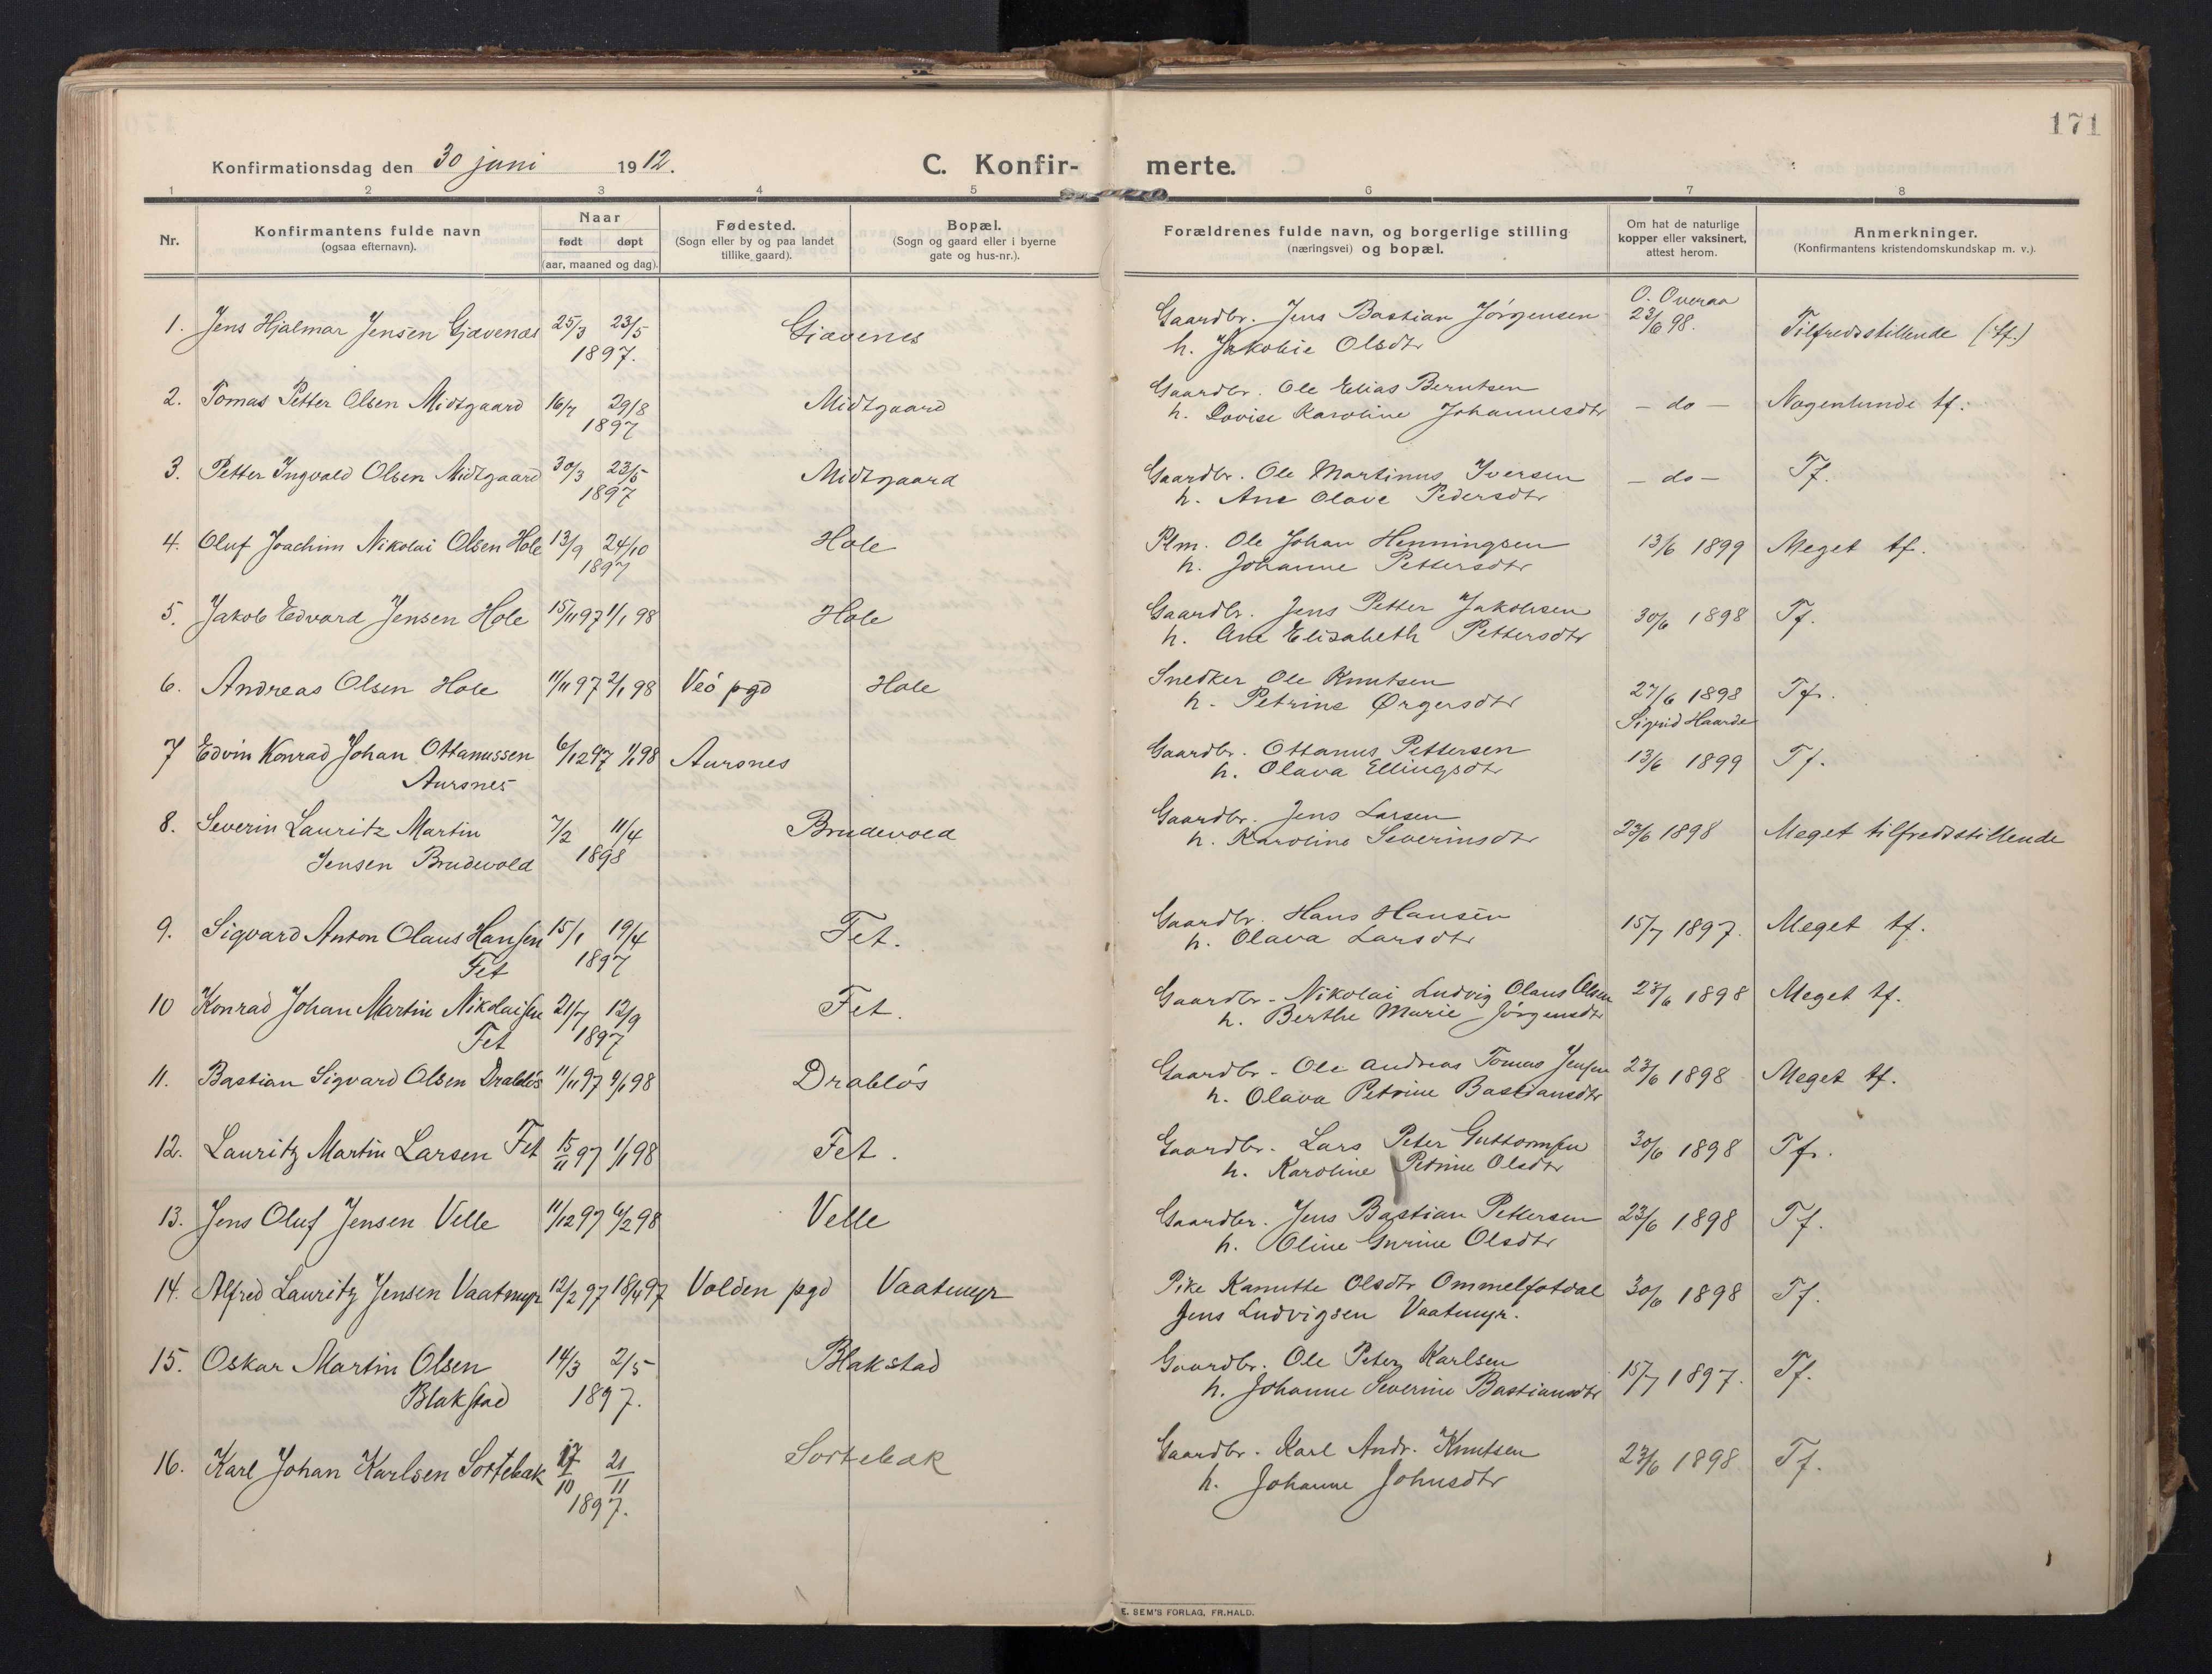 171
Konfirmationsdag den 30 juni 1912. C. Konfirmerte.
1 2 3 4 5 6 7 8
Nr. Konfirmantens fulde navn (ogsaa efternavn). Naar født døpt (aar, maaned og dag). Fødested. (Sogn eller by og paa landet tillike gaard). Bopæl. (Sogn og gaard eller i byerne gate og hus-nr.). Forældrenes fulde navn, og borgerlige stilling (næringsvei) og bopæl. Om hat de naturlige kopper eller vaksinert, attest herom. Anmerkninger. (Konfirmantens kristendomskundskap m. v.).
1. Jens Hjalmar Jensen Gjævenes 25/3 23/5 1897. Gjævenes Gaardbr. Jens Bastian Jörgensen O. Overaa 23/6 98. Tilfredsstillende (tf.)
h. Jakobie Olsdtr
2. Tomas Petter Olsen Midtgaard 16/7 29/8 1897 Midtgaard Gaardbr. Ole Elias Berntsen – do – Nogenlunde tf.
h. Lovise Karoline Johannesdtr
3. Petter Ingvald Olsen Midtgaard 30/3 23/5 1897 Midtgaard Gaardbr. Ole Martinus Iversen – do – Tf.
h. Ane Olave Pedersdtr
4. Oluf Joachim Nikolai Olsen Hole 13/9 24/10 1897 Hole Plm. Ole Johan Henningsen 13/6 1899 Meget tf.
h. Johanne Pettersdtr
5. Jakob Edvard Jensen Hole 15/11 97 1/1 98 Hole Gaardbr. Jens Petter Jakobsen 30/6 1898 Tf.
h. Ane Elisabeth Pettersdtr
6. Andreas Olsen Hole 11/11 97 2/1 98 Veö pgd Hole Snedker Ole Knutsen 27/6 1898 Tf.
h. Petrine Ørgersdtr Sigrid Haarde
7 Edvin Konrad Johan Ottanussen 6/12 97 1/1 98 Aursnes Gaardbr. Ottanus Pettersen 13/6 1899 Tf.
Aursnes h. Olava Ellingsdtr
8. Severin Lauritz Martin 7/2 11/4 1898 Brudevold Gaardbr. Jens Larsen 23/6 1898 Meget tilfredsstillende
Jensen Brudevold h. Karoline Severinsdtr
9. Sigvard Anton Olaus Hansen 15/1 19/4 1897 Fet. Gaardbr. Hans Hansen 15/7 1897. Meget tf.
Fet h. Olava Larsdtr
10 Konrad Johan Martin Nikolaisen 21/7 12/9 1897 Fet. Gaardbr. Nikolai Ludvig Olaus Olsen 23/6 1898 Meget tf.
Fet h. Berthe Marie Jörgensdtr
11. Bastian Sigvard Olsen Drablös 11/11 97 98 Drablös Gaardbr. Ole Andreas Tomas Jensen 23/6 1898 Meget tf.
h. Olava Petrine Bastiansdtr
12. Lauritz Martin Larsen Fet 15/11 97 1/1 98 Fet. Gaardbr. Lars Peter Guttormsen 30/6 1898 Tf.
h. Karoline Petrine Olsdtr
13. Jens Oluf Jensen Velle 11/12 97 6/2 98 Velle Gaardbr. Jens Bastian Pettersen 23/6 1898 Tf.
h. Oline Gurine Olsdtr
14. Alfred Lauritz Jensen Vaatmyr 12/2 97 18/4 97 Volden pgd Vaatmyr Pike Kanutte Olsdtr Ommelfotdal 30/6 1898 Tf.
Jens Ludvigsen Vaatmyr.
15. Oskar Martin Olsen 14/3 2/5 1897. Blakstad Gaardbr. Ole Peter Karlsen 15/7 1897. Tf.
Blakstad h. Johanne Severine Bastiansdtr
16. Karl Johan Karlsen Sortebak 17/10 21/11 1897. Sortebak Gaardbr. Karl Andr. Knutsen 23/6 1898 Tf.
h. Johanne Johnsdtr
E. SEM'S FORLAG, FR.HALD.